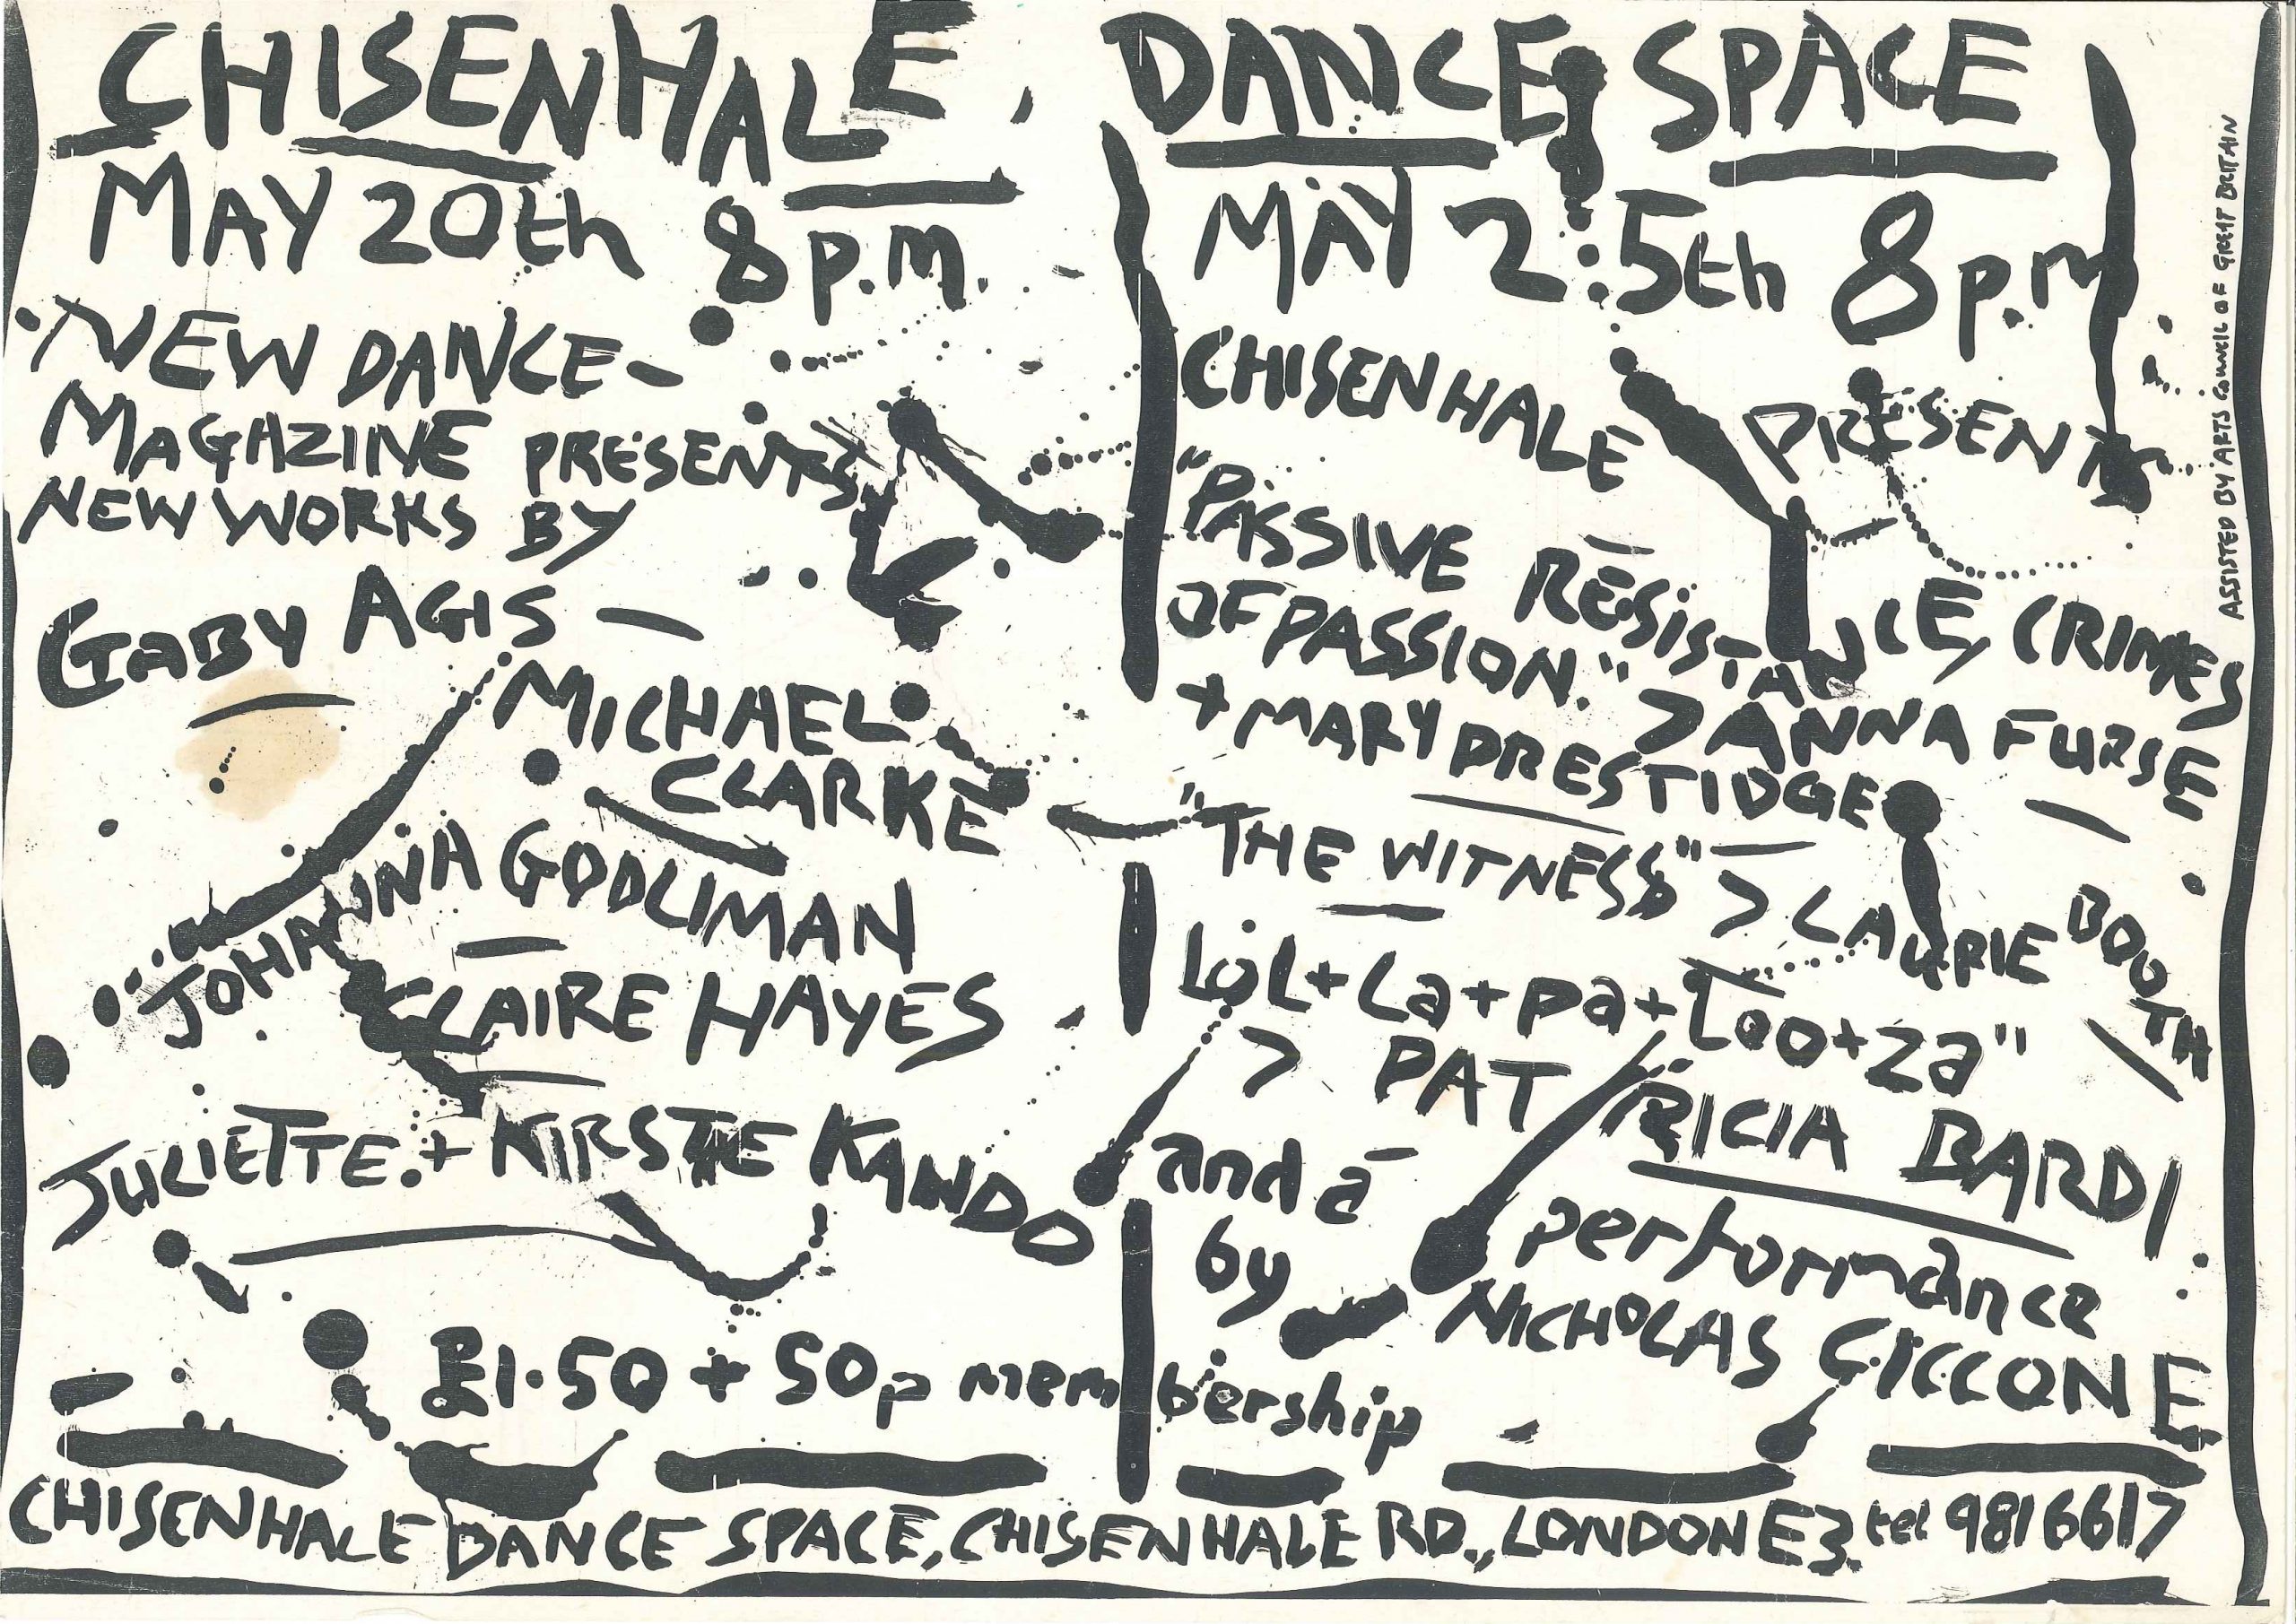 CHISENHALE DANCE SPACE
MAY 20th 8p.m.
NEW DANCE-
MAGAZINE PRESENTS
NEW WORKS BY
GABY AGIS —
MICHAEL
CLARKE
JOHANNA GODLIMAN
CLAIRE HAYES
JULIETTE + KIRSTIE KANDO
MAY 25th 8p.m
CHISENHALE PRESENTS
"PASSIVE RESISTANCE, CRIMES
OF PASSION." > ANNA FURSE
+ MARY PRESTIDGE
"THE WITNESS" > LAURIE BOOTH
LOL+La+pa+Loo+za"
> PATRICIA BARDI
and a performance
by NICHOLAS CICCONE
£1.50 + 50p membership
CHISENHALE DANCE SPACE, CHISENHALE RD., LONDON E3. tel 981 6617
ASSISTED BY ARTS COUNCIL OF GREAT BRITAIN